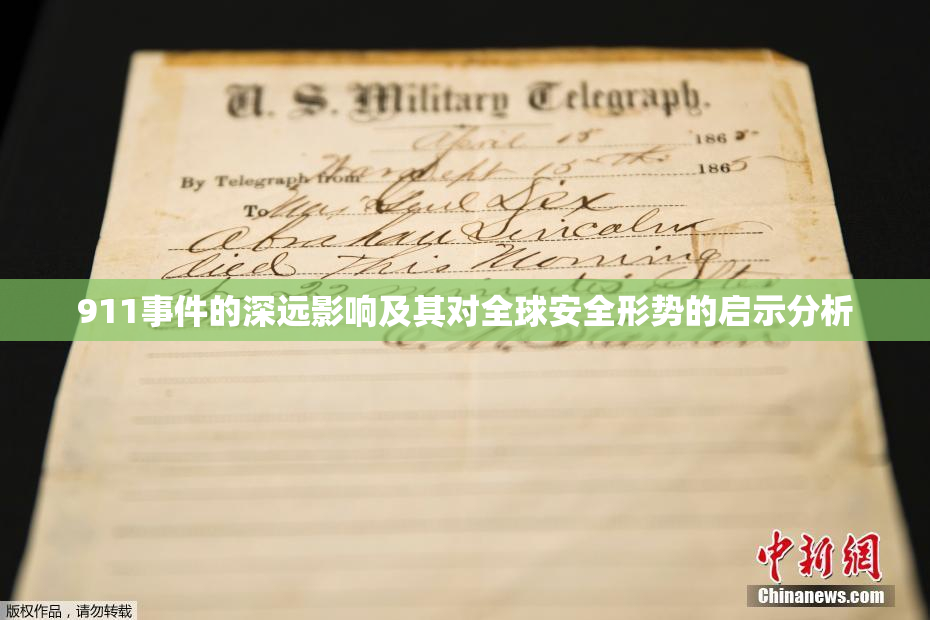 U. S. Military Telegraph.
April 15 1865
By Telegraph from War Dept 15th 1865
To Maj Genl Dix
Abraham Lincoln
died This Morning
22 minutes after
911事件的深远影响及其对全球安全形势的启示分析
中新网
Chinanews.com
版权作品，请勿转载